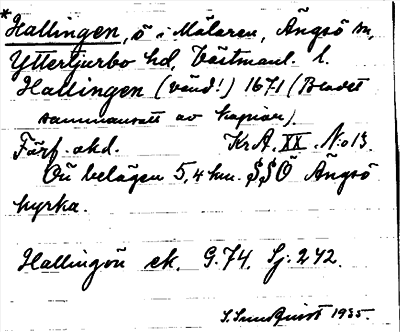 *Hallingen, ö i Mälaren, Ängsö sn,
Ytterljurbo hd, Västmanl. l.
Hallingen (vänd!) 1671 (Bladet
sammansatt av kopior).
Förf. okd. Kr A. XX. No 13.
Ön belägen 5,4 km. SSÖ Ängsö
kyrka.
Hallingön ek. G. 74. Sj. 242.
S. Sundquist 1935.